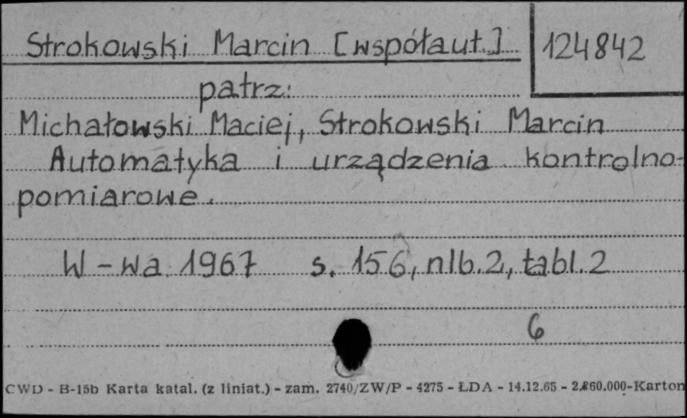 Strokowski Marcin [współaut.] 124842
patrz:
Michałowski Maciej, Strokowski Marcin
Automatyka i urządzenia kontrolno-
pomiarowe.
W-wa 1967 s. 156, nlb. 2, tabl. 2
6
CWD - B-15b Karta katal. (z liniat.) - zam. 2740/ZW/P - 4275 - ŁDA - 14.12.65 - 2.860.000-Karton